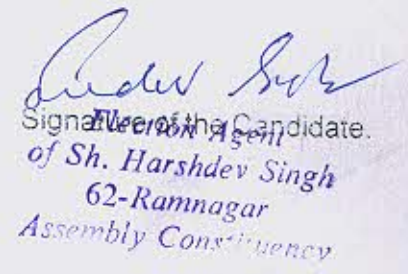 Signature of the Candidate.
Election Agent
of Sh. Harshdev Singh
62-Ramnagar
Assembly Constituency